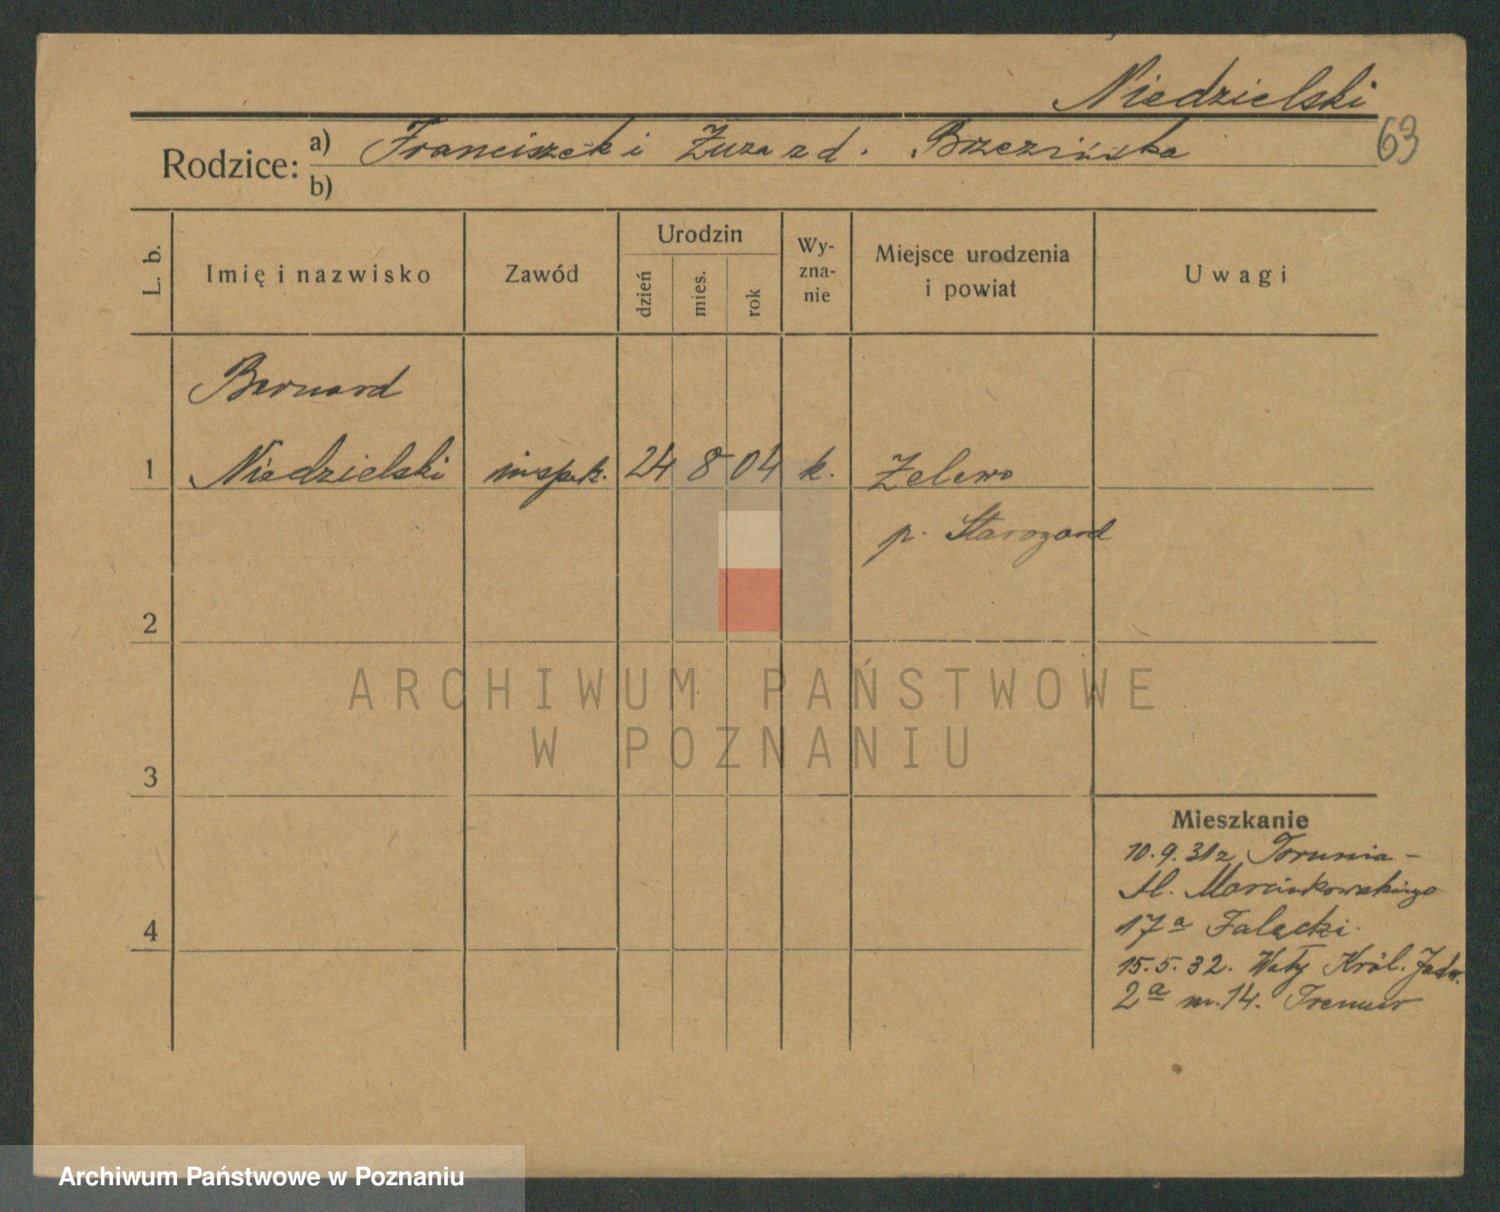 Niedzielski
63
Rodzice: a) Franciszek i Zuza z d. Brzezińska
b)
L. b.
Imię i nazwisko
Zawód
Urodzin
dzień
mies.
rok
Wy-
zna-
nie
Miejsce urodzenia
i powiat
Uwagi
Bernard
1 Niedzielski inspekt. 24 8 04 k. Zelewo
p. Starogard
2
3
4
Mieszkanie
10.9.31 z Torunia -
Al. Marcinkowskiego
17a Fałacki
15.5.32. Wały Król. Jadw.
2a m. 14.
ARCHIWUM PAŃSTWOWE
W POZNANIU
Archiwum Państwowe w Poznaniu